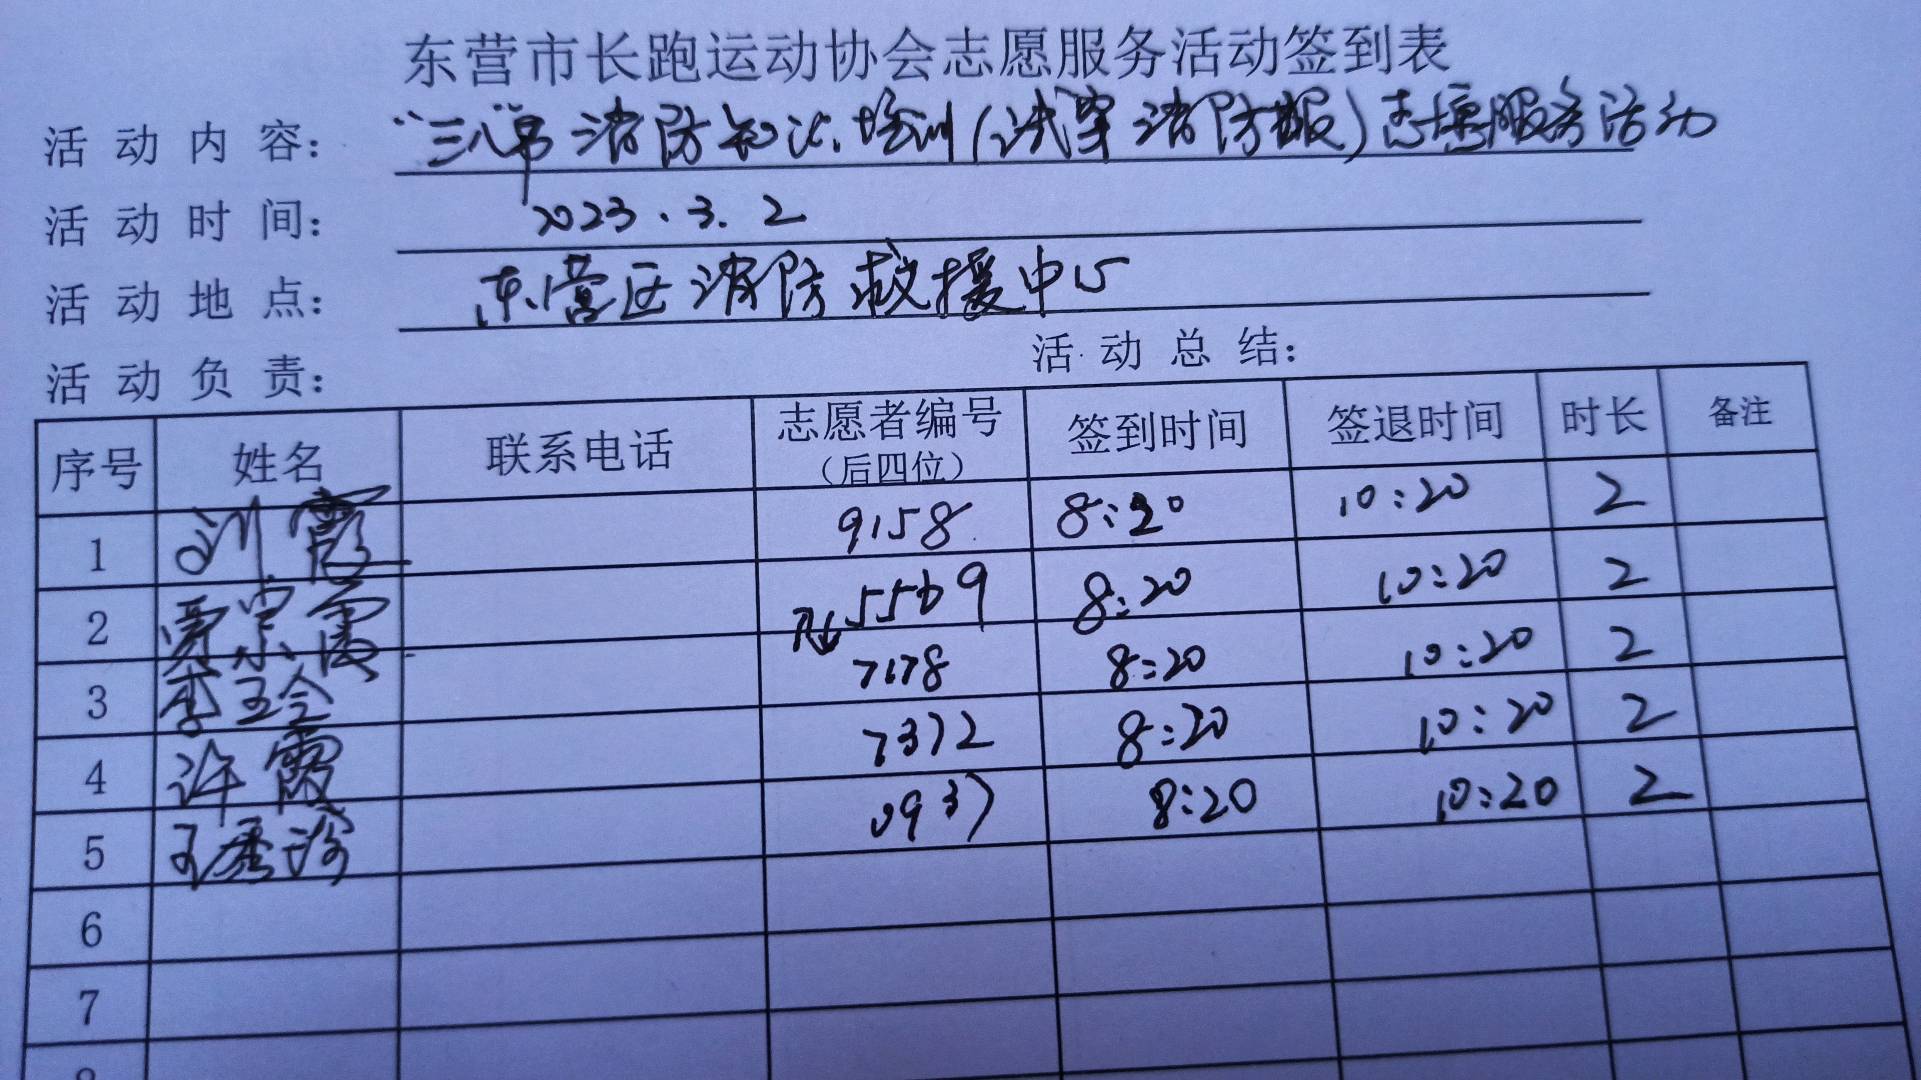 东营市长跑运动协会志愿服务活动签到表
活动内容： “三八”节消防知识培训(试穿消防服)志愿服务活动
活动时间： 2023.3.2
活动地点： 东营区消防救援中心
活动负责： 活动总结：
序号 姓名 联系电话 志愿者编号（后四位） 签到时间 签退时间 时长 备注
1 刘霞 9158 8:20 10:20 2
2 5569 8:20 10:20 2
3 李玉玲 7178 8:20 10:20 2
4 许霞 7372 8:20 10:20 2
5 王秀珍 0937 8:20 10:20 2
6
7
8